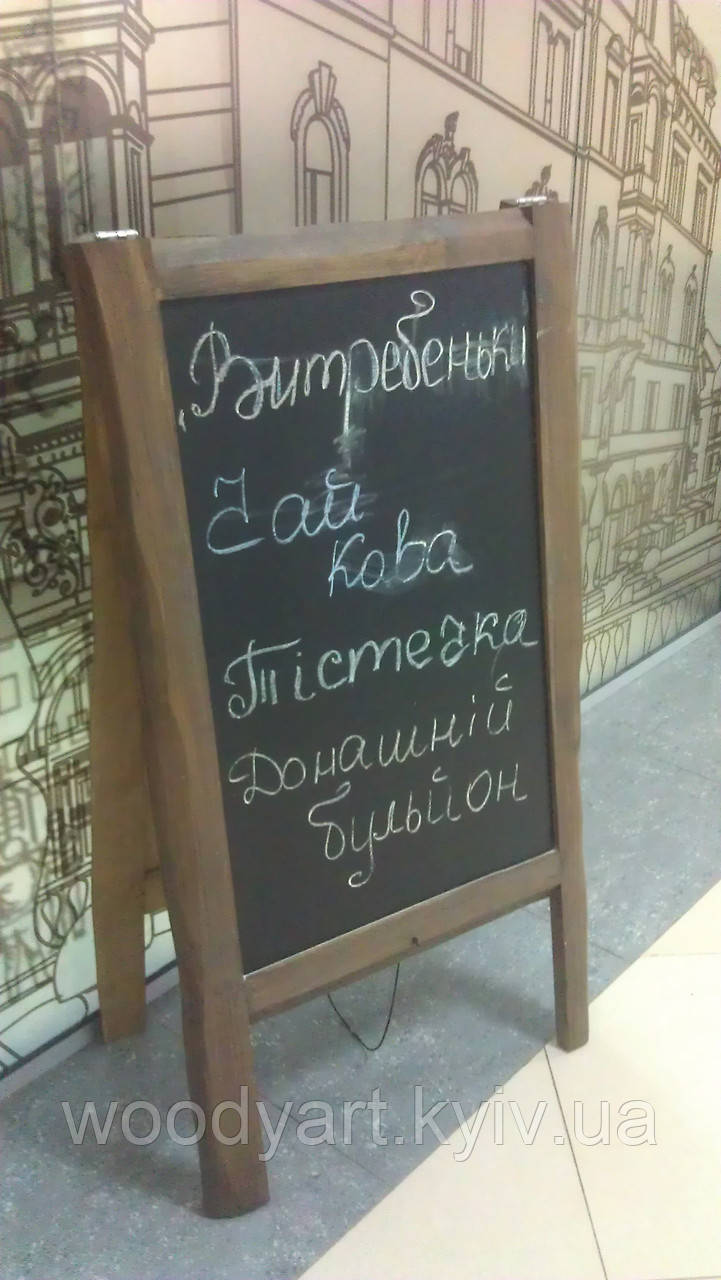 „Витребеньки
Чай
Кова
Тістечка
Донашній
бульйон
woodyart.kyiv.ua